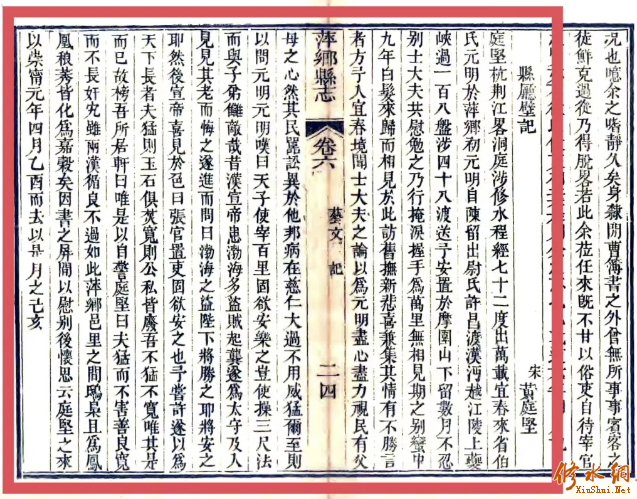 況也噫余之嗜靜久矣身隸閒曹簿書之外曾無所事事賓客
徒鮮克過從乃得脫若此余莅任來既不甘以俗吏自待宰官
縣廳壁記
宋 黃庭堅
庭堅杭荆江畧洞庭涉修水程經七十二度出萬載宜春來省伯
氏元明於萍鄉初元明自陳留出尉氏許昌渡漢沔越江陵上夔
峽過一百八盤涉四十八渡送予安置於摩圍山下留數月不忍
別士大夫共慰勉之乃行掩淚握手爲萬里無相見期之別蠻中
九年白髮來歸而相見於此訪舊撫新悲喜兼集其情有不勝言
者方予入宜春境聞士大夫之論以爲元明盡心盡力視民有父
萍鄉縣志 卷六 藝文 記 二四
母之心然其民嚚訟異於他邦病在慈仁大過不用威猛爾至則
以問元明元明嘆曰天子使宰百里固欲安樂之豈使操三尺法
而與子弟讎敵哉昔漢宣帝患渤海多盜賊起龔遂爲太守及入
見見其老而悔之遂進而問曰渤海之益陛下將勝之耶將安之
耶然後宣帝喜見於色曰張官置吏固欲安之也予嘗許遂以爲
天下長者夫猛則玉石俱焚寬則公私皆廢吾不猛不寬唯其是
而已故榜吾所居軒曰唯是以自警庭堅曰夫猛而不害善良寬
而不長奸宄雖兩漢循良不過如此萍鄉邑里之間鴟梟且爲鳳
凰稂莠皆化爲嘉穀矣因書之屏間以慰別後懷思云庭堅之來
以崇甯元年四月乙酉而去以是月之己亥
修水網
XinShui.Net